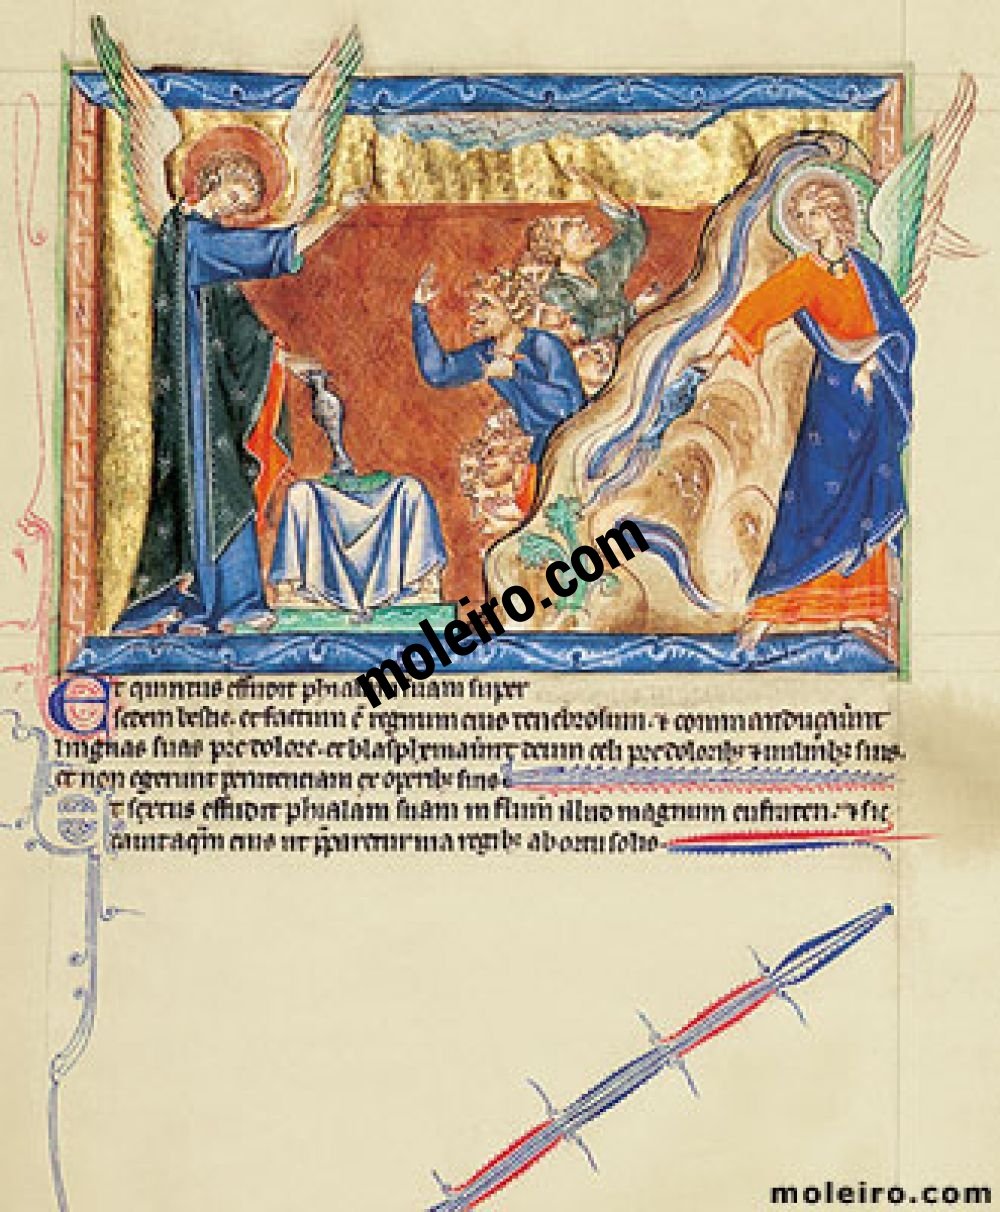 Et quintus effudit phialam suam super
sedem bestie. et factum ē regnum eius tenebrosum. ⁊ commanducauert
linguas suas pre dolore. et blasphemauert deum celi pre dolorib; ⁊ uulnib; suis.
et non egerunt penitenciam ex operib; suis
Et sextus effudit phialam suam in flum illud magnum eufraten. ⁊ sic
cauit aqm eius ut ppararetur uia regib; ab ortu solis.
moleiro.com
moleiro.com